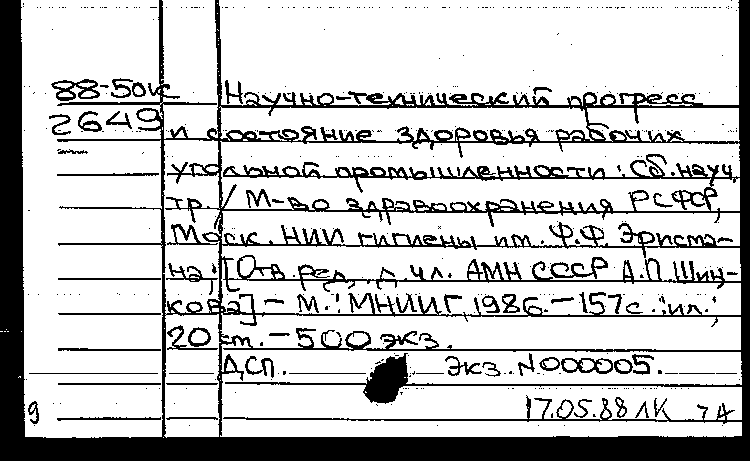 88-50к Научно-технический прогресс
2649 и состояние здоровья рабочих
угольной промышленности: Сб. науч.
тр. / М-во здравоохранения РСФСР,
Моск. НИИ гигиены им. Ф.Ф. Эрисма-
на; [Отв. ред. д. чл. АМН СССР А.П. Шиц-
кова] - М.: МНИИГ, 1986. - 157с.: ил.;
20 см. - 500 экз.
ДСП. Экз. N000005.
9 17.05.88 ЛК